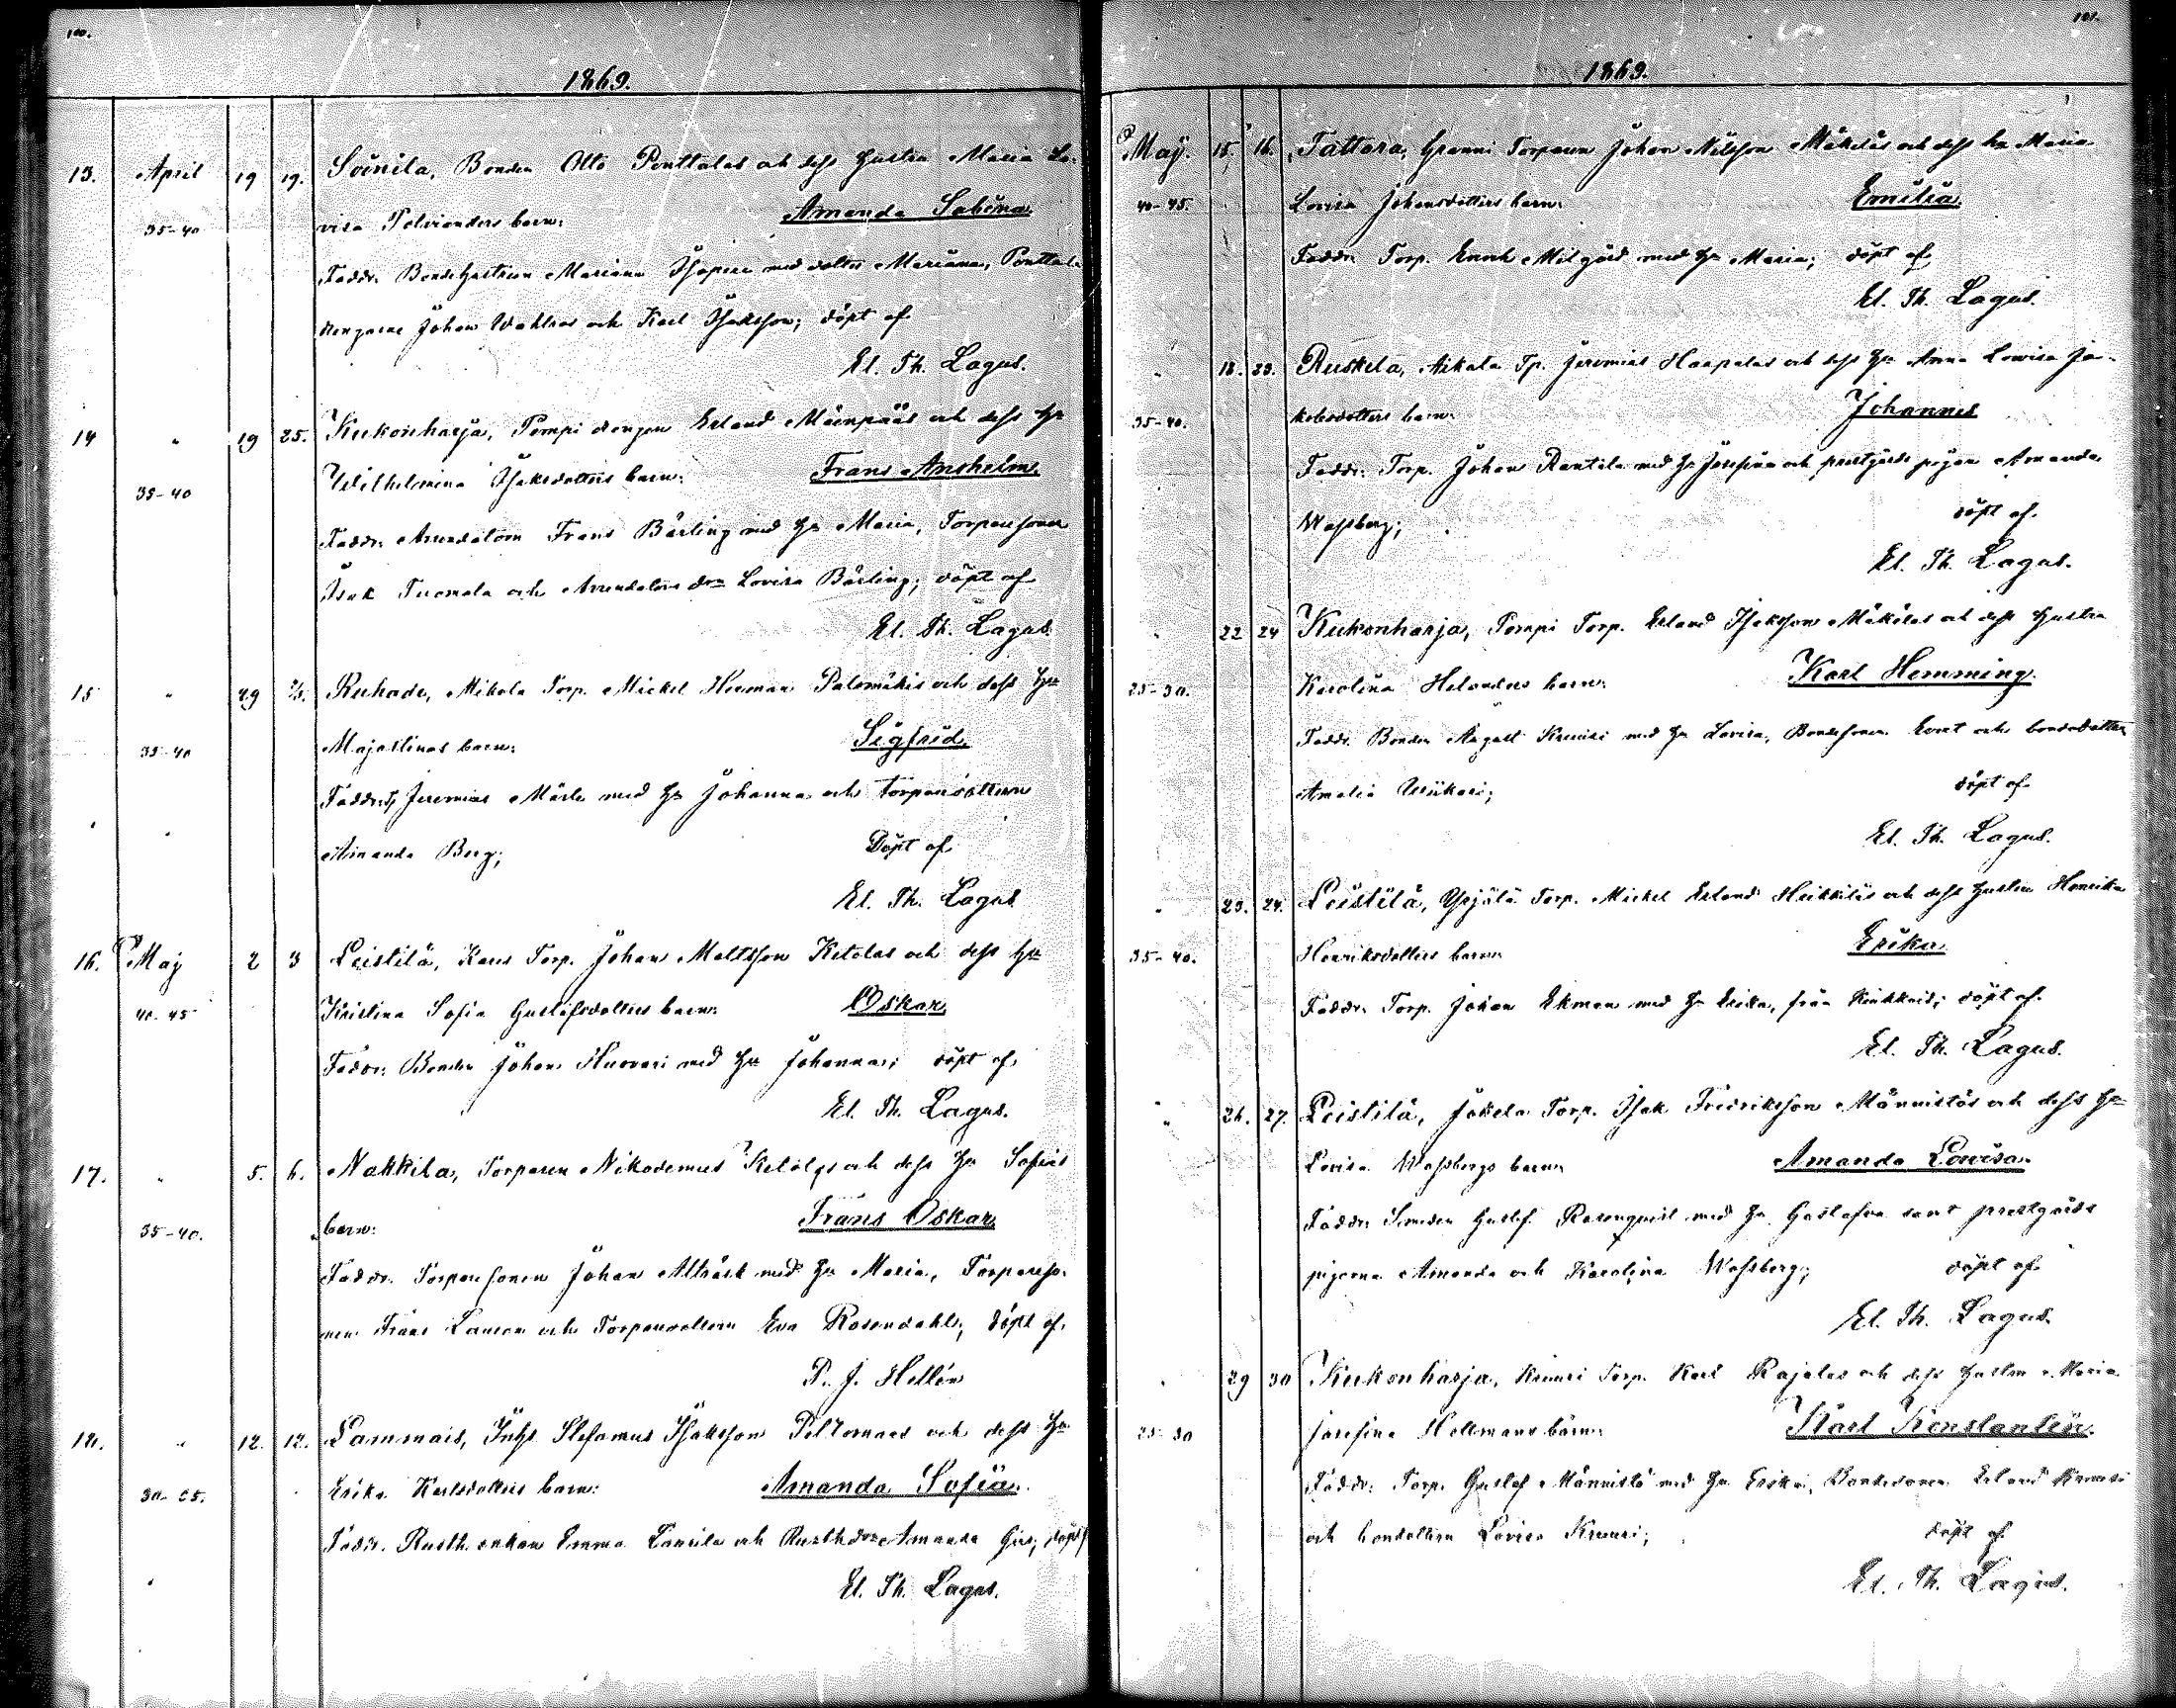 100.
1869.
13. April 19 19. Soinila, Bonden Otto Penttalas och dess hustru Maria Lo-
35-40 visa Polvianders barn: Amanda Sabina
Faddr. Bondehustrun Mariana med dotter Mariana, Penttala
drengarne Johan Wahlroos och Karl Isaksson; döpt af
El. Th. Lagus.
14 " 19 25. Kukonharja, Pompi drengen Erland Mäenpääs och dess hu
35-40 Wilhelmina Isaksdotters barn: Frans Anshelm
Faddr. Arrendatorn Frans Bärling med hu Maria, Torparesonen
Isak Tuomola och Arrendators dr Lovisa Bärling; döpt af
El. Th. Lagus.
15 " 29 2/5. Ruhade, Mikola Torp. Mickel Herman Palomäkis och dess hu
35-40 Majastinas barn: Sigfrid.
Faddr. Jeremias Märlä med hu Johanna och torparedottren
Amanda Berg; Döpt af
El. Th. Lagus
16. Maj 2 3 Leistilä, Torp. Johan Mattsson Ketolas och dess hu
40-45 Kristina Sofia Gustafsdotters barn: Oskar
Faddr. Bonden Johan Huovari med hu Johanna; döpt af
El. Th. Lagus.
17. " 5. 6. Nakkila, Torparen Nikodemus Ketolas och dess hu Sofias
35-40. barn: Frans Oskar
Faddr. Torparesonen Johan Alträsk med hu Maria, Torpareso-
nen Frans och Torparedottern Eva Rosendahl; döpt af
P. J. Hellén
18. " 12. 12. Lammais, Inhs Stefanus Isaksson Peltomaas och dess hu
30-35. Erika Karlsdotters barn: Amanda Sofia.
Faddr. Rusth. enkan Emma Lansila och Rusth dr Amanda döpt af
El. Th. Lagus.
101.
1869.
Maÿ. 15. 16. Tattara, Torparen Johan Nilsson Mäkeläs och dess hu Maria
40-45. Lovisa Johansdotters barn: Emilia.
Faddr. Torp. Enok Milgård med hu Maria; döpt af
El. Th. Lagus.
" 18. 23. Ruskila, Tp. Jeremias Haapalas och dess hu Anna Lowisa Ja-
35-40. kobsdotters barn: Johannes
Faddr. Torp. Johan Rantala med hu Josefina och prestgårds pigan Amanda
Wassberg; döpt af
El. Th. Lagus.
" 22 24 Kukonharja, Pompi Torp. Erland Isaksson Mäkeläs och dess hustru
25-30. Karolina Helanders barn: Karl Hemming.
Faddr. Bonden August Kruusi med hu Lovisa, Bondesonen och bondedottren
Amalia döpt af
El. Th. Lagus.
" 23. 24. Leistilä, Yrjälä Torp. Mickel Erland Heikkiläs och dess hustru Henrika
35-40. Henriksdotters barn: Erika
Faddr. Torp. Johan Ekman med hu Erika, från döpt af
El. Th. Lagus.
" 26. 27. Leistilä, Jokela Torp. Isak Fredriksson Männistös och dess hu
Lovisa Wassbergs barn: Amanda Lowisa.
Faddr. Smeden Gustaf Rosenqvist med hu Gustafva samt prestgårds
pigorna Amanda och Karolina Wassberg; döpt af
El. Th. Lagus.
" 29 30 Kukonharja, Kruusi Torp. Karl Rajalas och dess hustru Maria
25-30 Josefina Hellmans barn: Karl Konstantin.
Faddr. Torp. Gustaf Männistö med hu Erika, Bondesonen Erland Kruusi
och bondottren Lovisa Kruusi; döpt af
El. Th. Lagus.